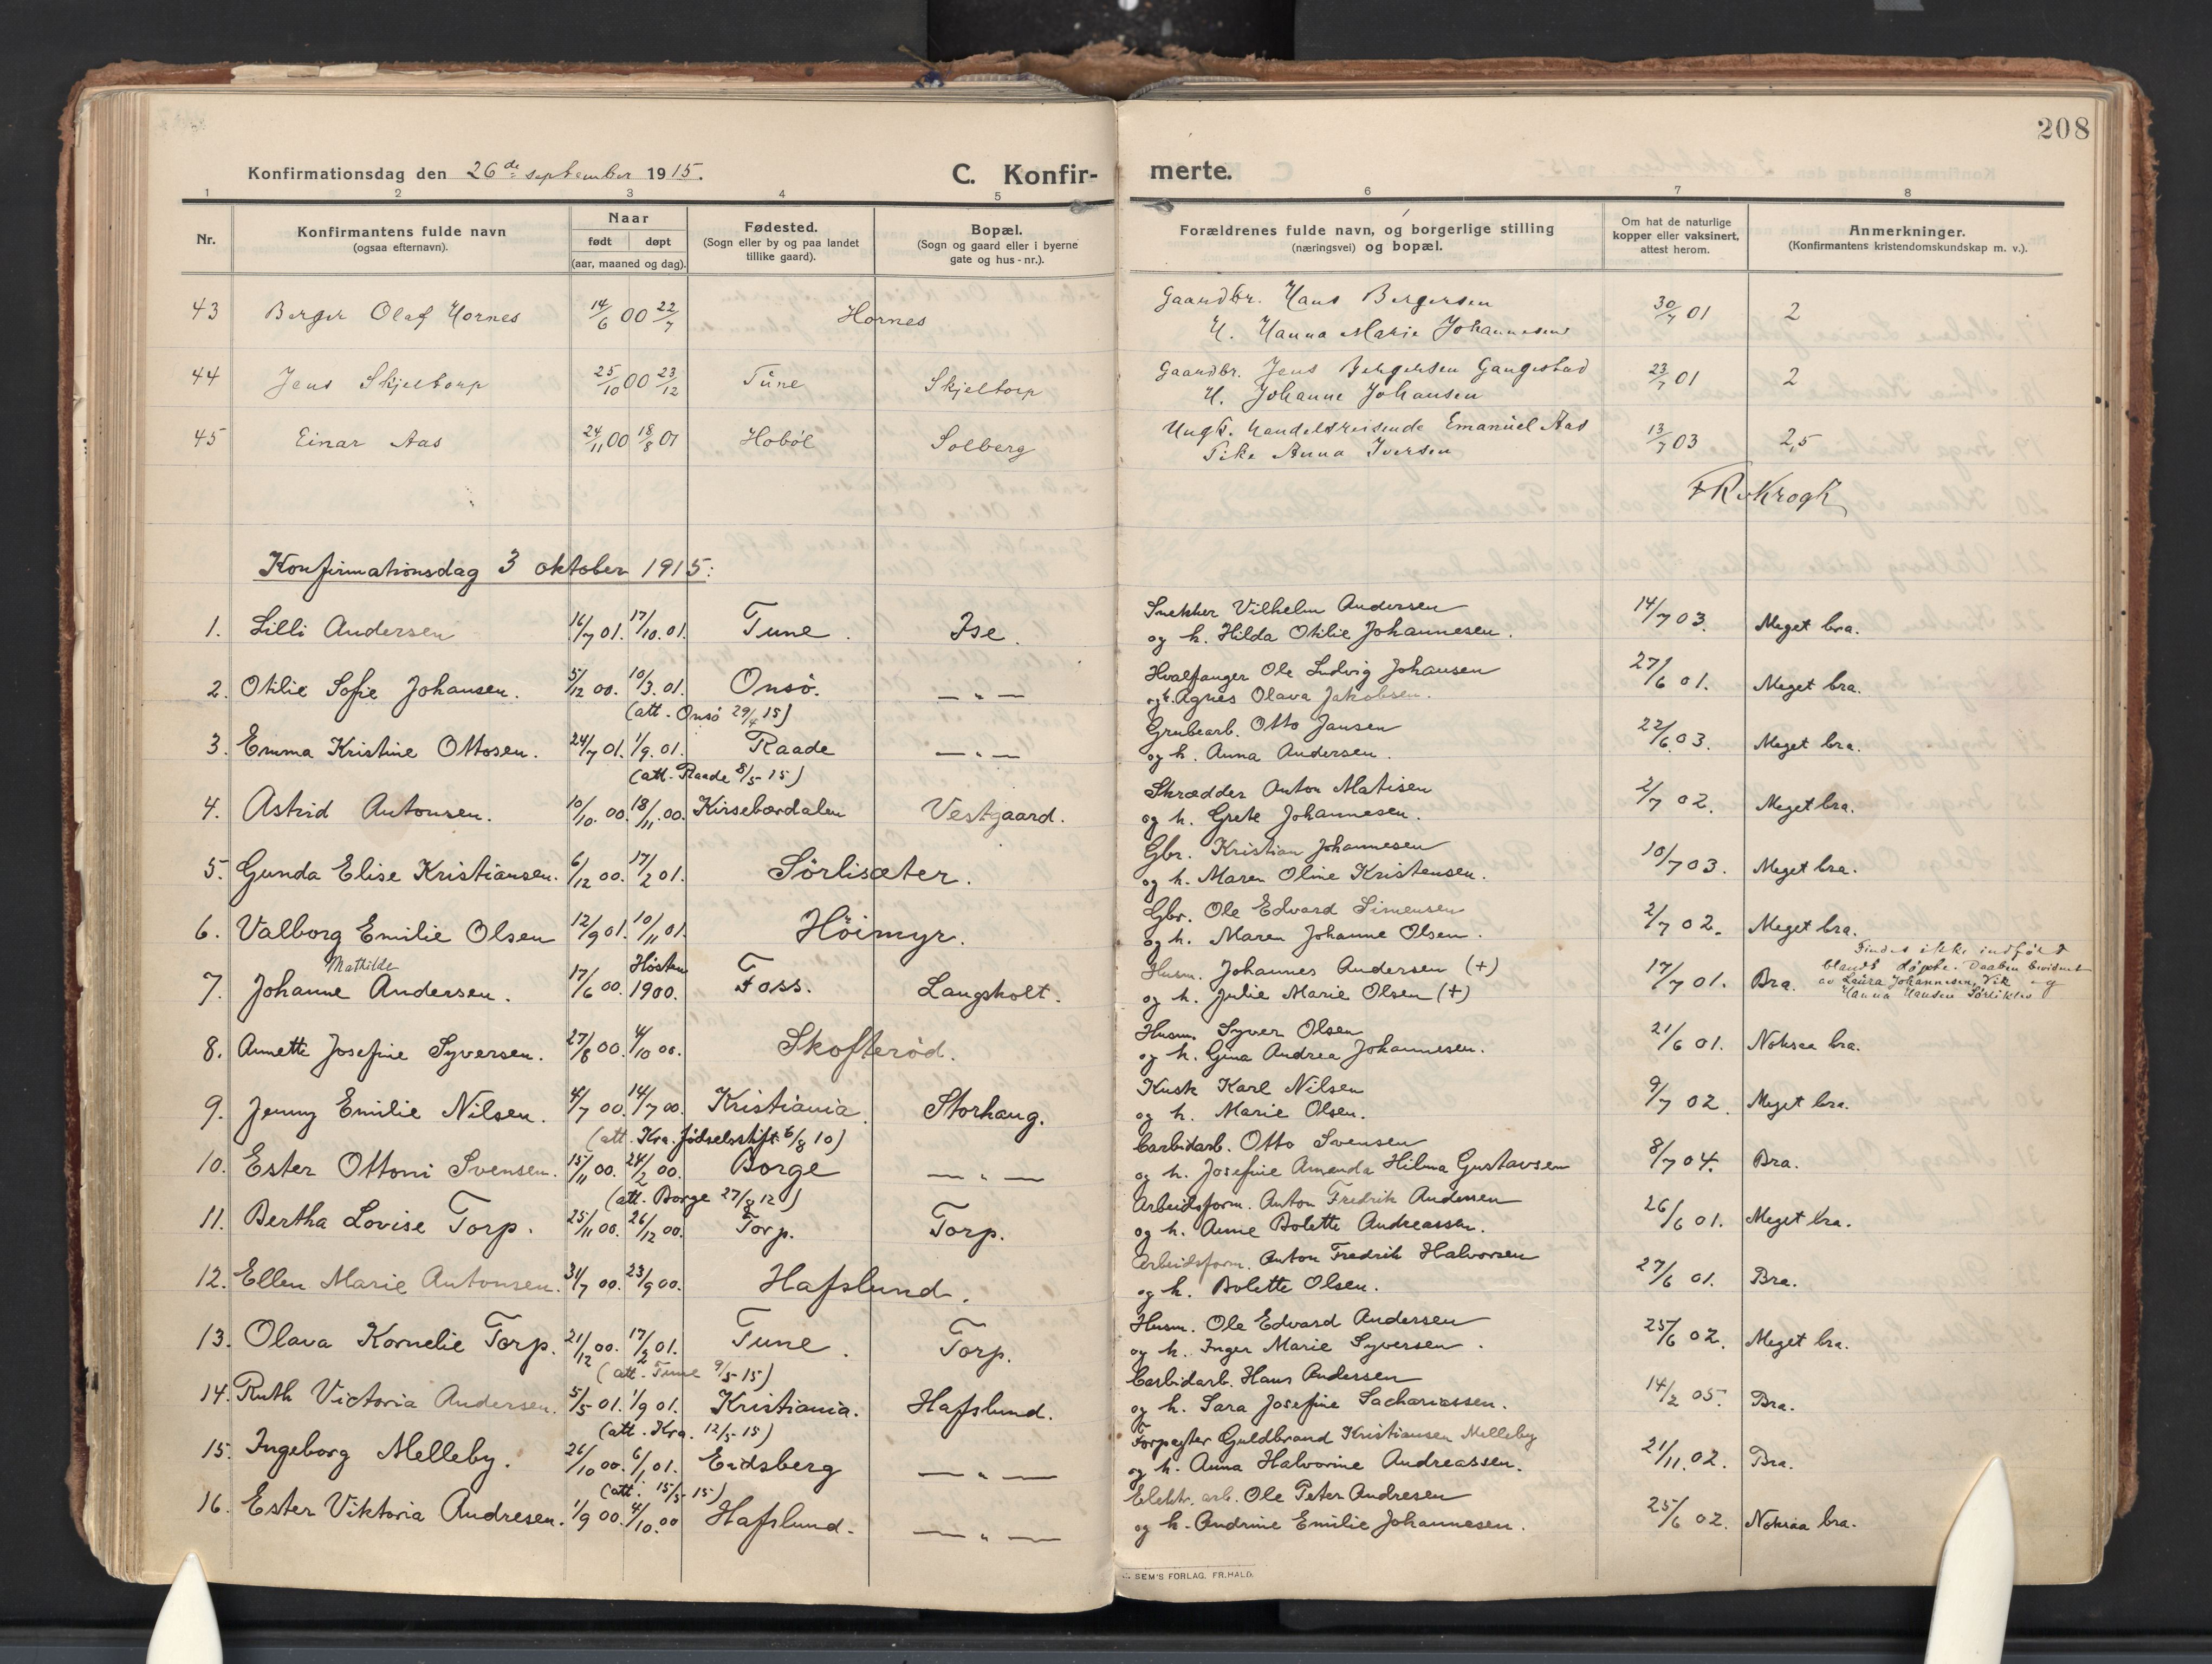 208
Konfirmationsdag den 26de september 1915.
C. Konfir-
merte.
1 2 3 4 5 6 7 8
Nr.
Konfirmantens fulde navn
(ogsaa efternavn).
Naar
født døpt
(aar, maaned og dag).
Fødested.
(Sogn eller by og paa landet
tillike gaard).
Bopæl.
(Sogn og gaard eller i byerne
gate og hus-nr.).
Forældrenes fulde navn, og borgerlige stilling
(næringsvei) og bopæl.
Om hat de naturlige
kopper eller vaksinert,
attest herom.
Anmerkninger.
(Konfirmantens kristendomskundskap m. v.).
43 Berger Olaf Hornes 14/6 00 22/7 Hornes
Gaardbr. Hans Bergersen
H. Hanna Marie Johannesen
30/7 01 2
44 Jens Skjeltorp 25/10 00 23/12 Tune Skjeltorp
Gaardbr. Jens Bergersen Gangestad
H. Johanne Johansen
23/7 01 2
45 Einar Aas 24/11 00 18/8 01 Hobøl Solberg
Ungk. handelsreisende Emanuel Aas
Pike Anna Iversen
13/7 03 2,5
Krogh
Konfirmationsdag 3 oktober 1915:
1. Lilli Andersen 16/7 01. 17/10. 01. Tune. Ise.
Snekker Vilhelm Andersen
og h. Hilda Otilie Johannesen.
14/7 03. Meget bra.
2. Otilie Sofie Johansen. 5/12 00. 10/3. 01. Onsö. — " —
(att. Onsö 29/4 15)
Hvalfanger Ole Ludvig Johansen
og h. Agnes Olava Jakobsen.
27/6 01. Meget bra.
3. Emma Kristine Ottosen. 24/7 01. 1/9. 01. Raade — " —
(att. Raade 8/5 15)
Grubearb. Otto Jansen
og h. Anna Andersen.
22/6. 03. Meget bra.
4. Astrid Antonsen. 10/10. 00. 18/11. 00. Kirsebærdalen Vestgaard.
Skrædder Anton Matisen
og h. Grete Johannesen.
2/7 02. Meget bra.
5. Gunda Elise Kristiansen. 6/12 00. 17/2 01. Sörlisæter.
Gbr. Kristian Johannesen
og h. Maren Oline Kristensen.
10/7 03. Meget bra.
6. Valborg Emilie Olsen 12/9 01. 10/11 01. Höimyr.
Gbr. Ole Edvard Simensen
og h. Maren Johanne Olsen.
2/7 02. Meget bra.
Mathilde
7. Johanne Andersen. 17/6 00. Høsten 1900. Foss. Langsholt.
Husm. Johannes Andersen (+)
og h. Julie Marie Olsen (+)
17/7 01. Bra.
Findes ikke indført
blandt døpte. Daaben bevidnet
av Laura Johannesen, Vik og
Hanna Hansen
8. Annette Josefine Syversen. 27/8 00. 4/10 00. Skofteröd.
Husm. Syver Olsen
og h. Gina Andrea Johannesen.
21/6 01. Noksaa bra.
9. Jenny Emilie Nilsen. 4/7 00. 14/7 00. Kristiania. Storhaug.
(att. Kra. fødselsstift. 6/8 10)
Kusk Karl Nilsen
og h. Marie Olsen.
9/7 02. Meget bra.
10. Ester Ottoni Svensen. 15/11 00. 24/2 00. Borge — " —
(att. Borge 27/8 12)
Carbidarb. Otto Svensen
og h. Josefine Amanda Hilma Gustavsen
8/7 04. Bra.
11. Bertha Lovise Torp. 25/11 00. 26/12 00. Torp. Torp.
Arbeidsform. Anton Fredrik Andersen
og h. Anne Bolette Andreassen.
26/6 01. Meget bra.
12. Ellen Marie Antonsen. 31/7 00. 23/9 00. Hafslund.
Arbeidsform. Anton Fredrik Halvorsen
og h. Bolette Olsen.
27/6 01. Bra.
13. Olava Kornelie Torp. 21/12 00. 17/2 01. Tune. Torp.
(att. Tune 9/5-15)
Husm. Ole Edvard Andersen
og h. Inger Marie Syversen.
25/6 02. Meget bra.
14. Ruth Victoria Andersen. 5/5 01. 1/9 01. Kristiania. Hafslund.
(att. Kra. 12/5-15)
Carbidarb. Hans Andersen
og h. Sara Josefine Sachariassen.
14/2 05. Bra.
15. Ingeborg Melleby. 26/10 00. 6/1 01. Eidsberg — " —
(att. 15/5-15)
Forpagter Guldbrand Kristiansen Melleby
og h. Anna Halvorine Andreassen.
21/11. 02. Bra.
16. Ester Viktoria Andresen. 1/9 00. 4/10. 00 Hafslund. — " —
Elektr. arb. Ole Peter Andresen
og h. Andrine Emilie Johannesen.
25/6 02. Noksaa bra.
SEM'S FORLAG, FR.HALD.